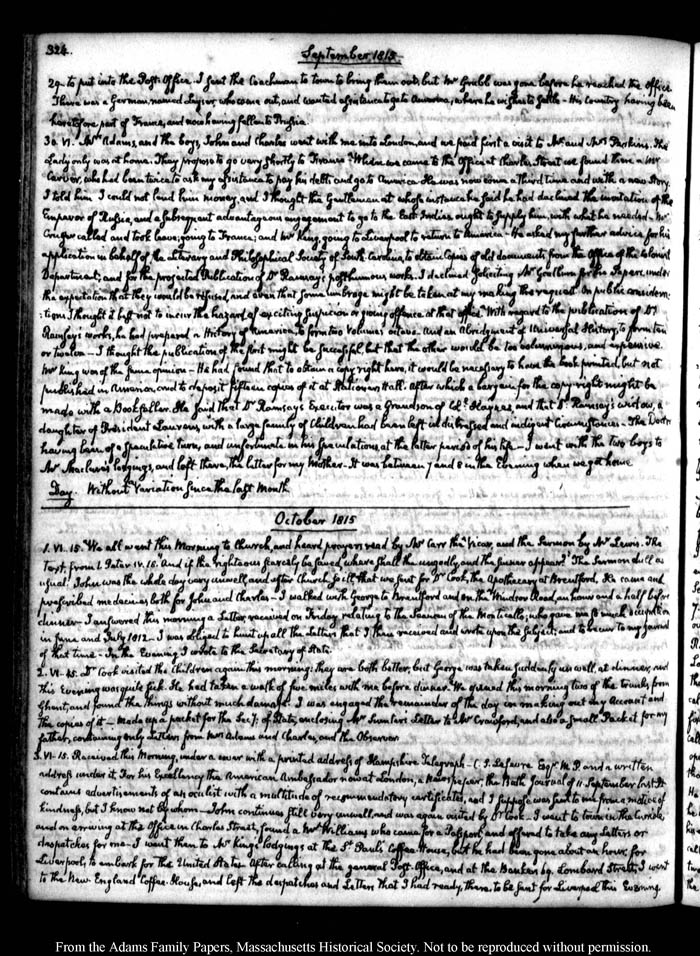 324.
September 1815.
29. to put into the Post-Office. I sent the Coachman to town to bring them out; but Mr Grubb was gone before he reached the office.
There was a German, named Leyser who came out, and wanted assistance to go to America, where he wishes to settle – His Country having been
heretofore part of France, and now having fallen to Prussia.
30. VI. Mrs Adams, and the boys, John and Charles went with me into London, and we paid first a visit to Mr and Mrs Perkins. The
Lady only was at home. They propose to go very shortly to France. When we came to the Office at Charles Street we found there a Mr
Carver, who had been twice to ask my assistance to pay his debts and go to America. He was now come a third time and with a new Story.
I told him I could not lend him money, and I thought the Gentleman at whose instance he said he had declined the invitation of the
Emperor of Russia, and a subsequent advantageous engagement to go to the East Indies, ought to supply him, with what he needed – Mr
Cruger called and took leave; going to France; and Mr King, going to Liverpool to return to America – He asked my further advice for his
application in behalf of the Literary and Philosophical Society of South Carolina, to obtain Copies of old documents from the Office of the Colonial
Department; and for the projected Publication of Dr Ramsay's posthumous works. I declined soliciting Mr Goulburn for the Papers, under
the expectation that they would be refused, and even that some umbrage might be taken at my making the request. On public considera-
:tions I thought it best not to incur the hazard of exciting suspicion or giving offence at that office. With regard to the publication of Dr
Ramsay's works, he had prepared a History of America, to form two Volumes octavo. And an Abridgment of Universal History, to form ten
or twelve – I thought the publication of the first might be successful, but that the other would be too voluminous, and expensive.
Mr King was of the same opinion – He had found that to obtain a copy right here, it would be necessary to have the book printed, but not
published in America, and to deposit fifteen copies of it at Stationers Hall. after which a bargain for the copy-right might be
made with a Bookseller. He said that Dr Ramsay's Executor was a Grandson of Coll. Haynes, and that Dr Ramsay's widow, a
daughter of President Laurens, with a large family of Children had been left in distressed and indigent Circumstances – The Doctor
having been of a speculative turn, and unfortunate in his speculations at the latter period of his life – I went with the two boys to
Mr Maclure's lodgings, and left there, the letter for my Mother – It was between 7 and 8 in the Evening when we got home
Day. Without Variation since the last Month.
October 1815
1. VI. 15. We all went this Morning to Church, and heard prayers read by Mr Carr the Vicar, and the Sermon by Mr Lewis. The
Text, from 1. Peter IV. 18. And if the righteous scarcely be saved, where shall the ungodly and the sinner appear? The Sermon dull as
usual. John was the whole day very unwell, and after Church so ill that we sent for Dr Cook, the Apothecary at Brentford. He came and
prescribed medecines both for John and Charles – I walked with George to Brentford and on the Windsor Road, an hour and a half before
dinner – I answered this morning a Letter received on Friday relating to the Seamen of the Monticello, who gave me so much occupation
in June and July 1812. – I was obliged to hunt up all the letters that I then received and wrote upon the subject; and to recur to my journal
of that time – In the Evening I wrote to the Secretary of State.
2. VI. 45. Dr Cook visited the Children again this morning: they are both better, but George was taken suddenly unwell, at dinner, and
this Evening was quite sick. He had taken a walk of five miles with me before dinner. We opened this morning two of the trunks, from
Ghent, and found the things without much damage. I was engaged the remainder of the day in making out my Account and
the copies of it – made up a packet for the Secy: of State, enclosing Mr Sumter's Letter to Mr Crawford, and also a small Packet for my
father, containing only Letters from Mrs Adams and Charles, and the Observer.
3. VI. 15. Received this Morning, under a cover with a printed address of Hampshire Telegraph – C. S. Lefevre Esqr M.P. and a written
address under it. For his Excellency the American Ambassador now at London, a Newspaper, the Bath Journal of 11. September last. It
contains advertisements of an oculist with a multitude of recommendatory certificates, and I suppose was sent to me from a motive of
kindness, but I know not by whom – John continues still very unwell, and was again visited by Dr Cook – I went to town in the Curricle,
and on arriving at the Office in Charles Street, found a Mr Williams who came for a Passport, and offered to take any letters or
despatches for me – I went then to Mr King's lodgings at the St Paul's Coffee House, but he had been gone about an hour, for
Liverpool, to embark for the United States. After calling at the general Post-Office, and at the Bankers 69. Lombard Street, I went
to the New England Coffee-House, and left the despatches and Letters that I had ready, there, to be sent for Liverpool this Evening.
From the Adams Family Papers, Massachusetts Historical Society. Not to be reproduced without permission.